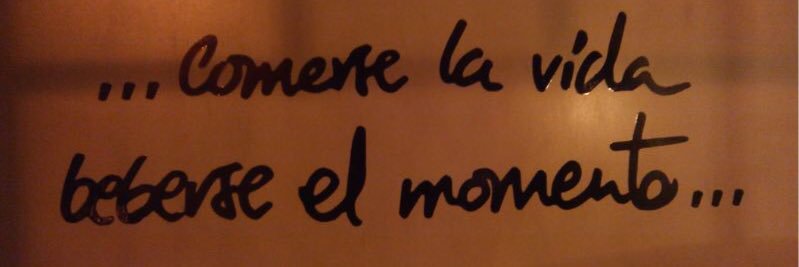 ...comerse la vida
beberse el momento...